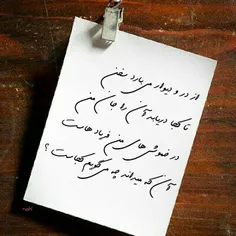 از در و دیوار می بارد سخن
تا کجا دریابد آن را جان من
در خموشی های من فریادهاست
آن که میداند چه می گویم کجاست ؟